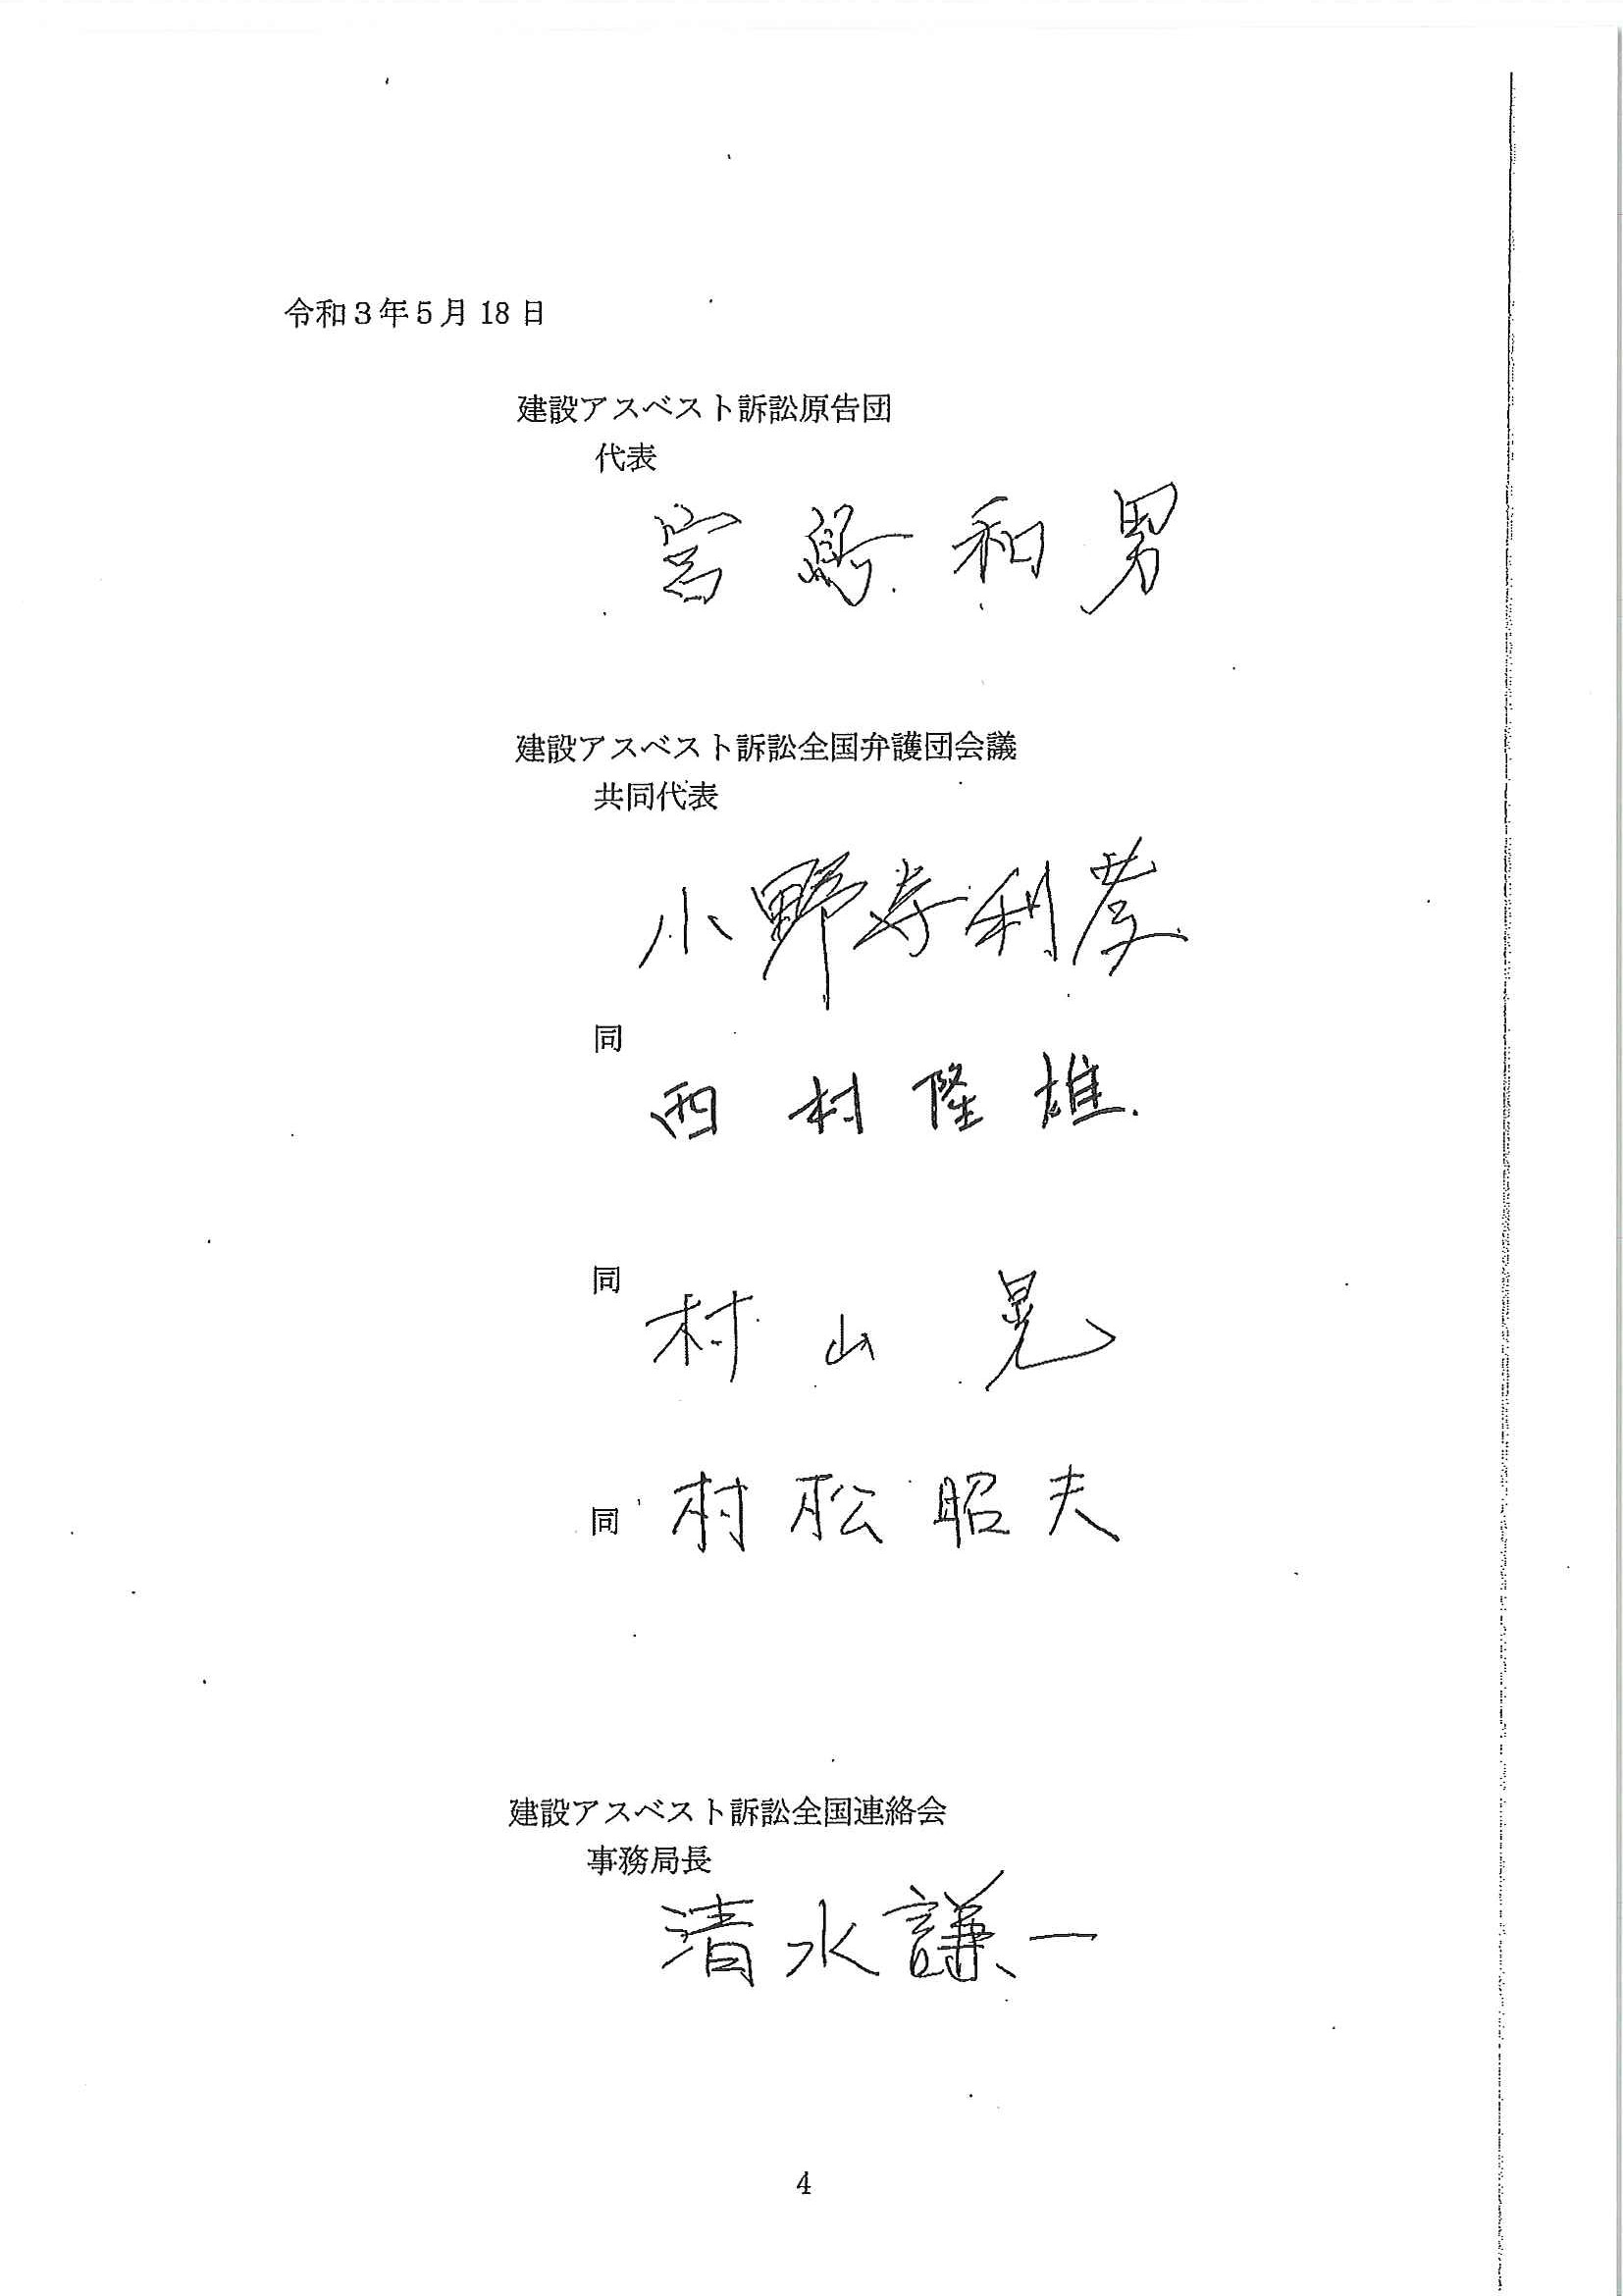 令和３年５月 18 日
建設アスベスト訴訟原告団
代表
宮島和男
建設アスベスト訴訟全国弁護団会議
共同代表
小野寺利孝
同
西村隆雄
同
村山晃
同 村松昭夫
建設アスベスト訴訟全国連絡会
事務局長
清水謙一
4